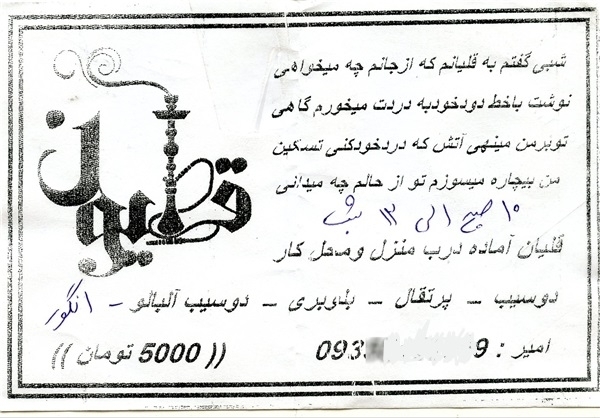 قلیون
شبی گفتم به قلیانم که ازجانم چه میخواهی
نوشت باخط دودخودبه دردت میخورم گاهی
توبرمن مینهی آتش که دردخودکنی تسکین
من بیچاره میسوزم تو از حالم چه میدانی
۱۰ صبح الی ۱۲ شب
قلیان آماده درب منزل ومحل کار
دوسیب _ پرتقال _ بلوبری _ دوسیب آلبالو - انگور
امیر : 093 9 (( 5000 تومان ))